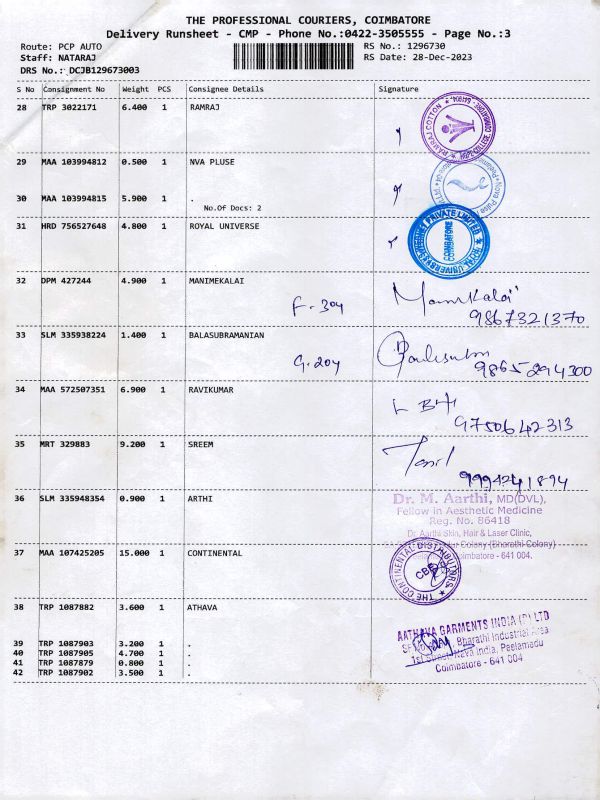 THE PROFESSIONAL COURIERS, COIMBATORE
Delivery Runsheet - CMP - Phone No.:0422-3505555 - Page No.:3
Route: PCP AUTO RS No.: 1296730
Staff: NATARAJ RS Date: 28-Dec-2023
DRS No.: DCJB129673003
S No Consignment No Weight PCS Consignee Details Signature
28 TRP 3022171 6.400 1 RAMRAJ
RAMRAJ COTTON
29 MAA 103994812 0.500 1 NVA PLUSE
30 MAA 103994815 5.900 1 .
No.Of Docs: 2
31 HRD 756527648 4.800 1 ROYAL UNIVERSE
COIMBATORE
32 DPM 427244 4.900 1 MANIMEKALAI
F-304 Manimkalai
9867321370
33 SLM 335938224 1.400 1 BALASUBRAMANIAN
G-204
9865294300
34 MAA 572507351 6.900 1 RAVIKUMAR
9750642313
35 MRT 329883 9.200 1 SREEM
Tamil
9994241894
36 SLM 335948354 0.900 1 ARTHI
Dr. M. Aarthi, MD(DVL),
Fellow in Aesthetic Medicine
Reg. No. 86418
Dr Aarthi Skin, Hair & Laser Clinic,
Colony (Bharathi Colony)
Coimbatore - 641 004.
37 MAA 107425205 15.000 1 CONTINENTAL
THE CONTINENTAL DISTRIBUTORS
CBE
38 TRP 1087882 3.600 1 ATHAVA
AATHAVA GARMENTS INDIA (P) LTD
Bharathi Industrial Area
1st Street, Nava India, Peelamedu
Coimbatore - 641 004
39 TRP 1087903 3.200 1 .
40 TRP 1087905 4.700 1 .
41 TRP 1087879 0.800 1 .
42 TRP 1087902 3.500 1 .